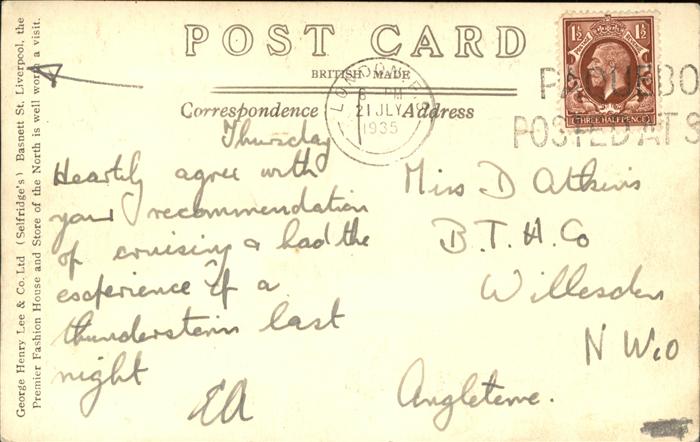 POST CARD
BRITISH MADE
Correspondence Address
George Henry Lee & Co. Ltd (Selfridge's) Basnett St. Liverpool, the
Premier Fashion House and Store of the North is well worth a visit.
LONDON F.S.
6 PM
21 JLY
1935
PAQUEBO
POSTED AT S
1½ 1½
POSTAGE REVENUE
THREE HALFPENCE
Thursday
Heartily agree with
your recommendation
of cruising & had the
experience of a
thunderstorm last
night
EA
Miss D Atkins
B.T.H. Co
Willesden
N W 10
Angleterre.